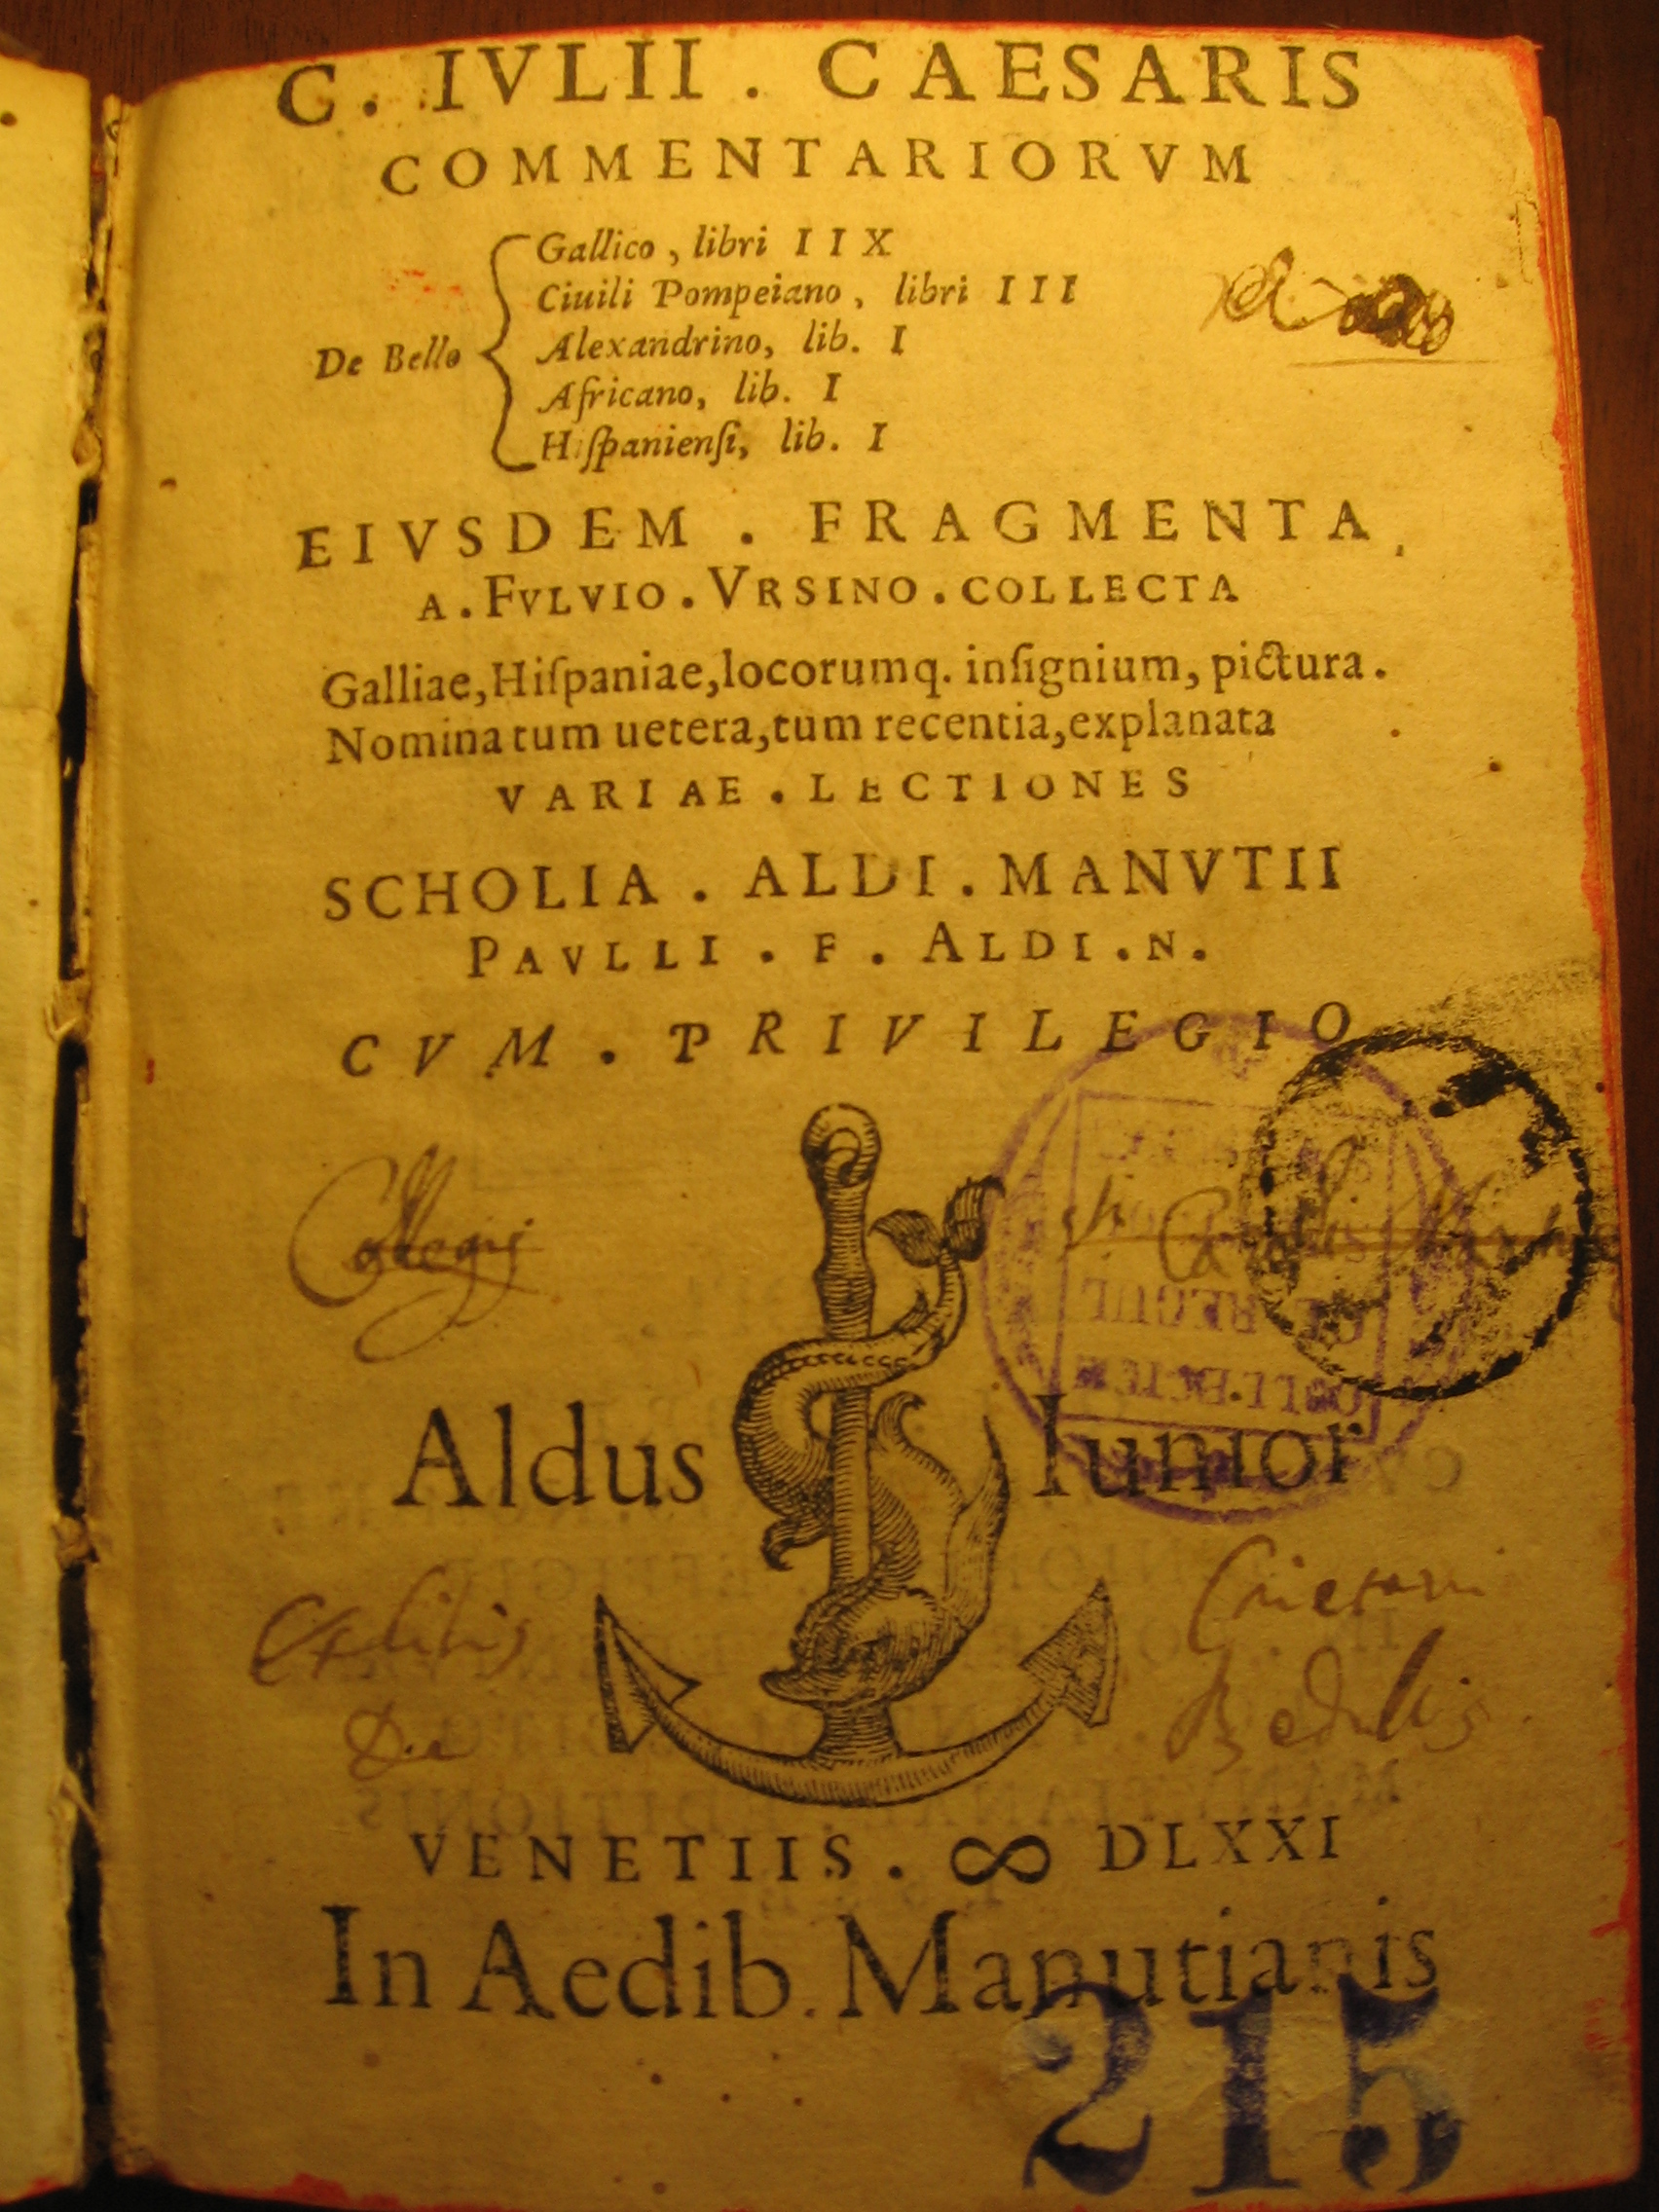 C. IVLII. CAESARIS
COMMENTARIORVM
De Bello
Gallico, libri IIX
Ciuili Pompeiano, libri III
Alexandrino, lib. I
Africano, lib. I
Hiſpanienſi, lib. I
EIVSDEM. FRAGMENTA,
A. FVLVIO. VRSINO. COLLECTA
Galliae, Hiſpaniae, locorumq. inſignium, pictura.
Nomina tum uetera, tum recentia, explanata
VARIAE. LECTIONES
SCHOLIA. ALDI. MANVTII
PAVLLI. F. ALDI. N.
CVM. PRIVILEGIO
Collegij
Aldus Iunior
VENETIIS. ∞ DLXXI
In Aedib. Manutianis
215